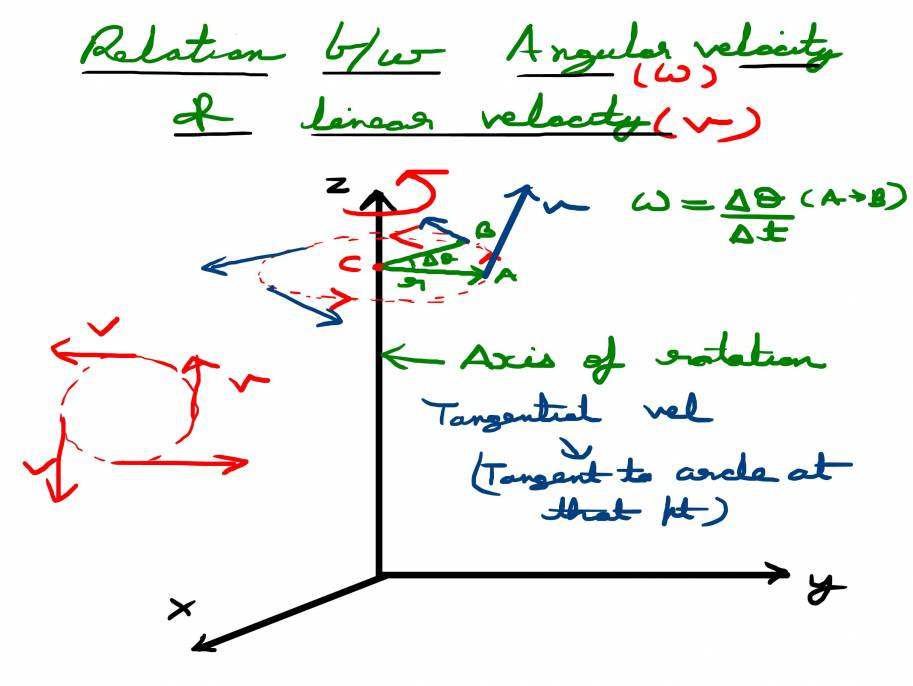 Relation b/w Angular velocity
(ω)
& linear velocity (v)
z
v
ω = Δθ/Δt (A→B)
B
C
Δθ
r
A
v
v
v
← Axis of rotation
Tangential vel
(Tangent to circle at
that pt)
x
y